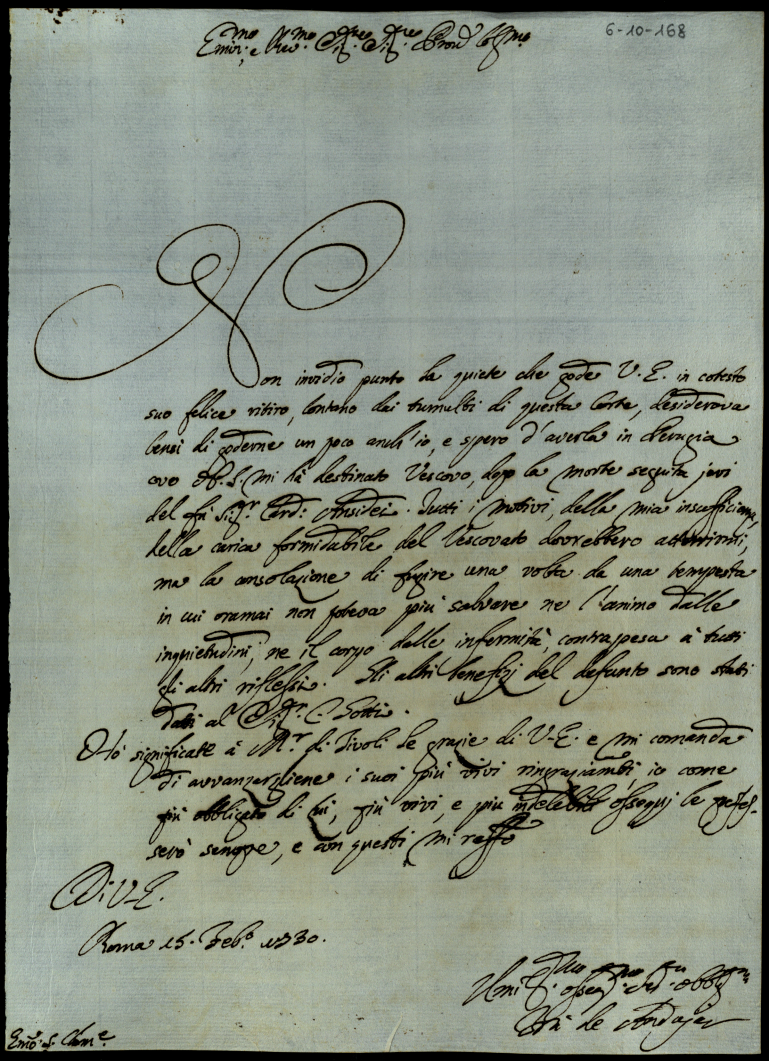 6-10-168
Emin.mo e Rev.mo Sig.re Sig.re Pron Col.mo
Non invidio punto la quiete che gode V. E. in cotesto
suo felice ritiro, lontano dai tumulti di questa Corte, desiderava
bensì di goderne un poco anch'io, e spero d'averla in Perugia
ove N. S. mi hà destinato Vescovo, dopo la morte seguita jeri
del fù Sig.r Card: Ansidei. Tutti i motivi, della mia insufficienza,
della carica formidabile del Vescovato dovrebbero atterrirmi,
ma la consolazione di fugire una volta da una tempesta
in cui oramai non poteva più salvare ne l'animo dalle
inquietudini, ne il corpo dalle infermità, contrapesa à tutti
gli altri riflessi. Gli altri benefizj del defunto sono stati
dati al Sig.r C. Gotti.
Hò significate à M.r di Tivoli le grazie di V. E. e mi comanda
di avvanzargliene i suoi più vivi ringraziamti, io come
più obbligato di lui, più vivi, e più indelebili ossequj le profes-
serò sempre, e con questi mi resto
Di V. E.
Roma 15. Feb.o 1730.
Umi
de
Emo S. Clem.e